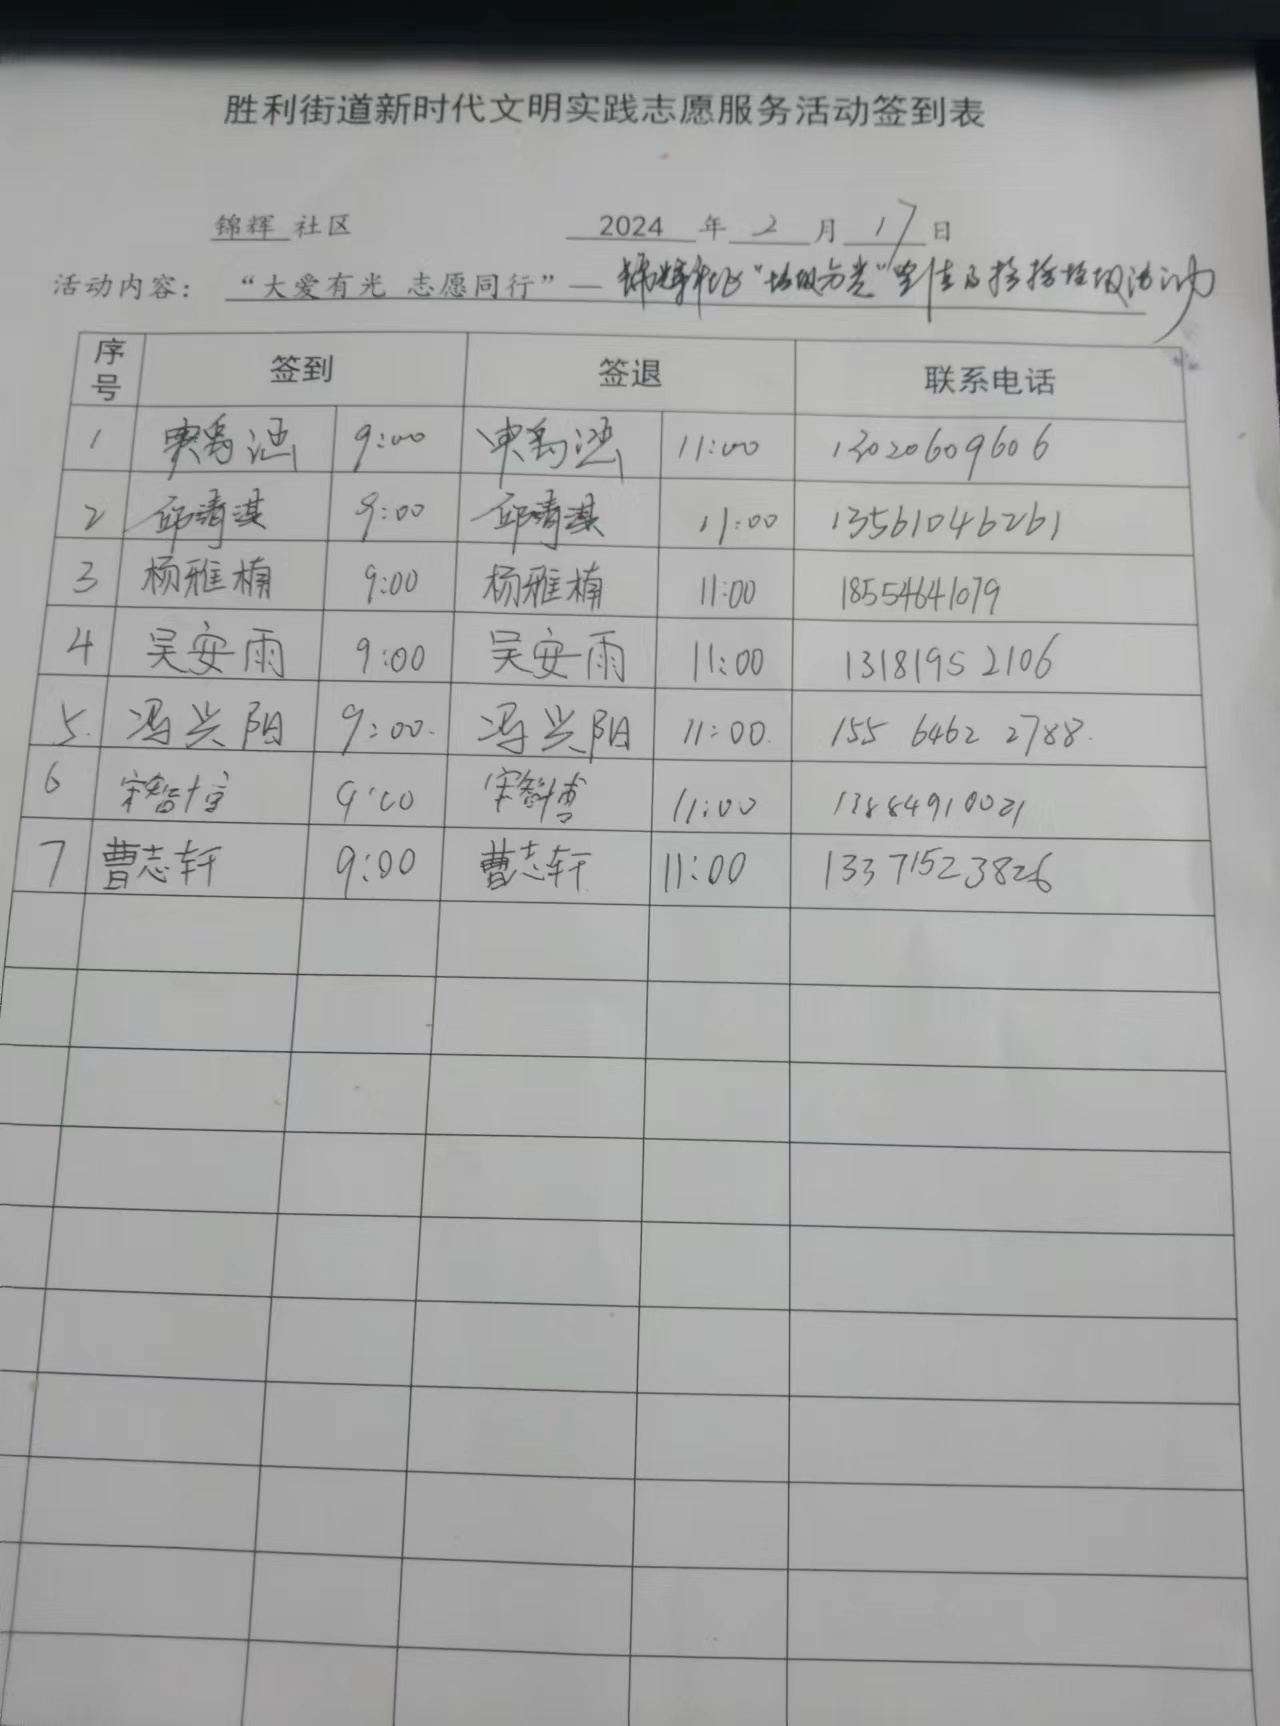 胜利街道新时代文明实践志愿服务活动签到表
锦辉 社区 2024 年 2 月 17 日
活动内容：“大爱有光 志愿同行”— 锦辉社区“垃圾分类”宣传及捡拾垃圾活动
序号 签到 签退 联系电话
1 禹涵 9:00 禹涵 11:00 13020609606
2 邱清淇 9:00 邱清淇 11:00 13561046261
3 杨雅楠 9:00 杨雅楠 11:00 18554641079
4 吴安雨 9:00 吴安雨 11:00 13181952106
5. 冯兴阳 9:00. 冯兴阳 11:00. 155 6462 2788.
6 宋智博 9:00 宋智博 11:00 13884910021
7 曹志轩 9:00 曹志轩 11:00 13371523826